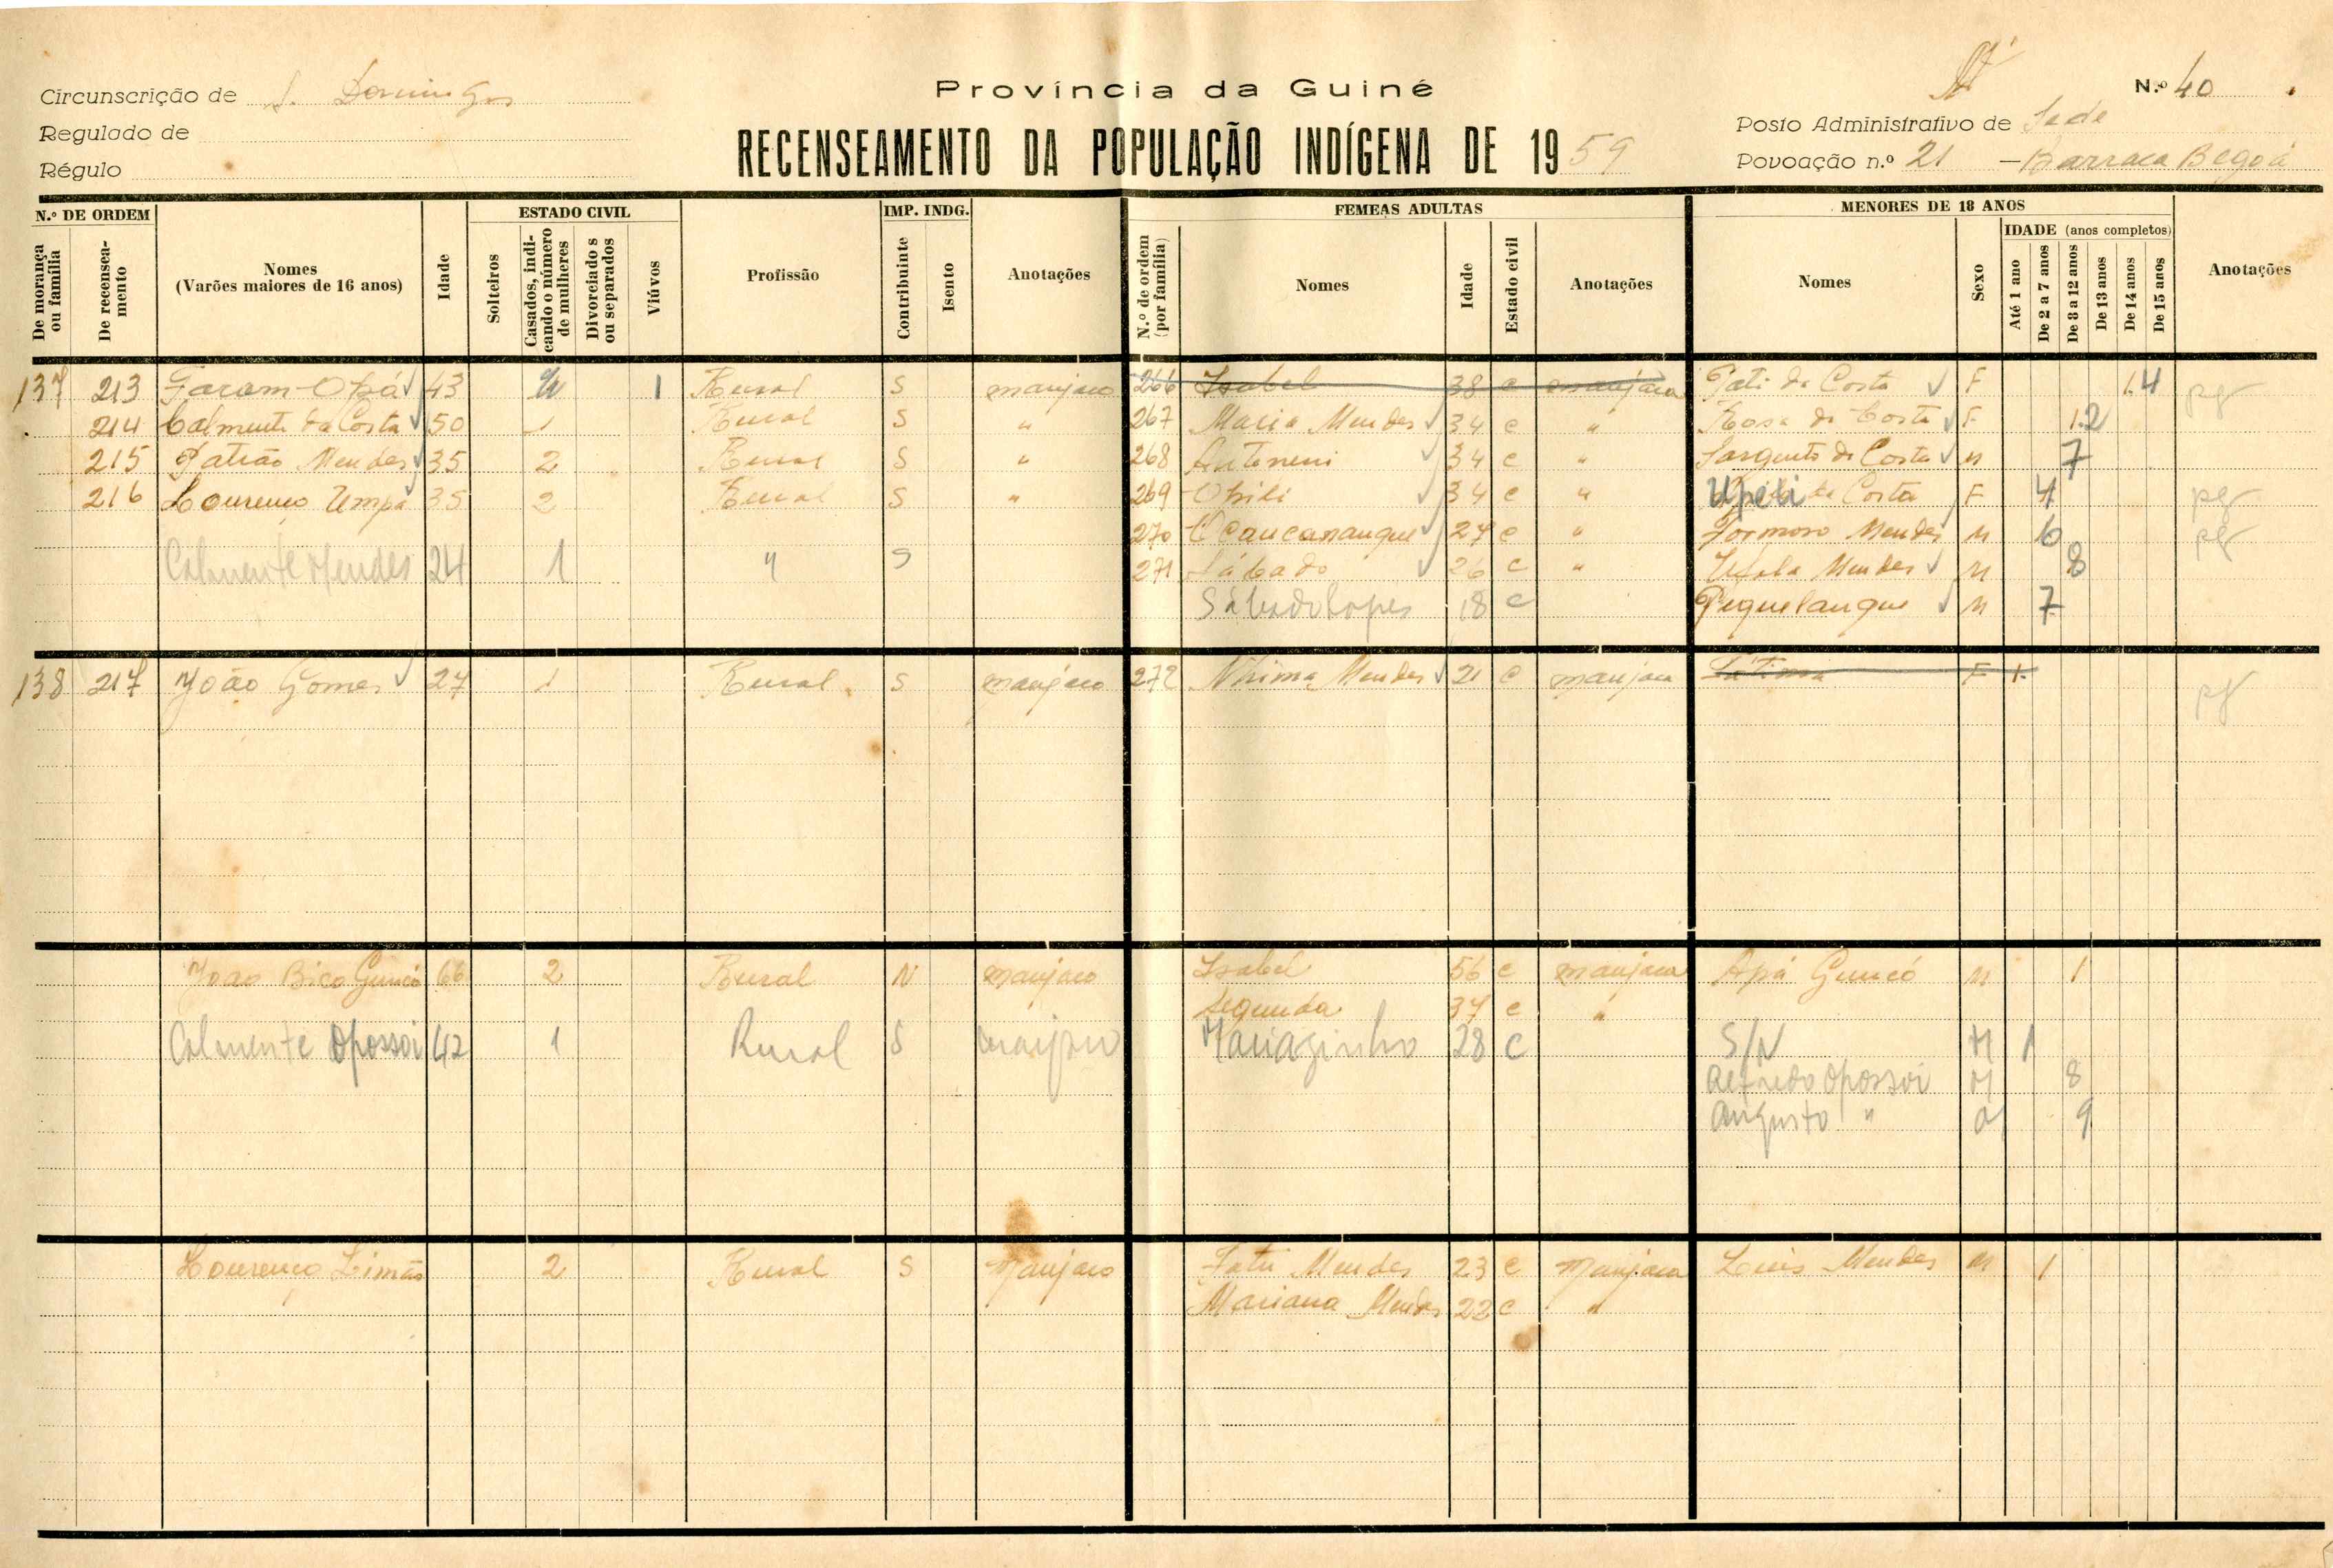 Província da Guiné
N.º 40
Circunscrição de S. Domingos
Regulado de
Régulo
RECENSEAMENTO DA POPULAÇÃO INDÍGENA DE 1959
Posto Administrativo de Sede
Povoação n.º 21 - Barraca Begoá
N.º DE ORDEM
De morança ou família
De recensea-mento
Nomes
(Varões maiores de 16 anos)
Idade
ESTADO CIVIL
Solteiros
Casados, indi-cando o número de mulheres
Divorciados ou separados
Viúvos
Profissão
IMP. INDG.
Contribuinte
Isento
Anotações
FEMEAS ADULTAS
N.º de ordem (por família)
Nomes
Idade
Estado civil
Anotações
MENORES DE 18 ANOS
Nomes
Sexo
IDADE (anos completos)
Até 1 ano
De 2 a 7 anos
De 8 a 12 anos
De 13 anos
De 14 anos
De 15 anos
Anotações
137 213 43 1 Rural S manjaco 266 Isabel 38 c manjaca Pati da Costa F 14 pg
214 Calmente da Costa 50 1 Rural S " 267 Maria Mendes 34 c " Rosa da Costa F 12
215 Patrão Mendes 35 2 Rural S " 268 Antoneni 34 c " Sargento da Costa M 7
216 Lourenço Umpá 35 2 Rural S " 269 Opili 34 c " Upeli da Costa F 4 pg
270 Ocaucananque 27 c " Formoso Mendes M 6 pg
Calmente Mendes 24 1 " S 271 Sábado 26 c " Mendes M 8
Sábado Lopes 18 c Piquelanque M 7
138 217 João Gomes 27 1 Rural S manjaco 272 Nhima Mendes 21 c manjaca Fátima F 1 pg
João Bico Guncó 66 2 Rural N manjaco Isabel 56 c manjaca Apá Guncó M 1
Segunda 37 c "
Calmente Opossoi 42 1 Rural S manjaco Mariazinha 28 c S/N M 1
Alfredo Opossoi M 8
Augusto " M 9
Lourenço Limão 2 Rural S Manjaco Fatu Mendes 23 c Manjaca Luis Mendes M 1
Mariana Mendes 22 c "